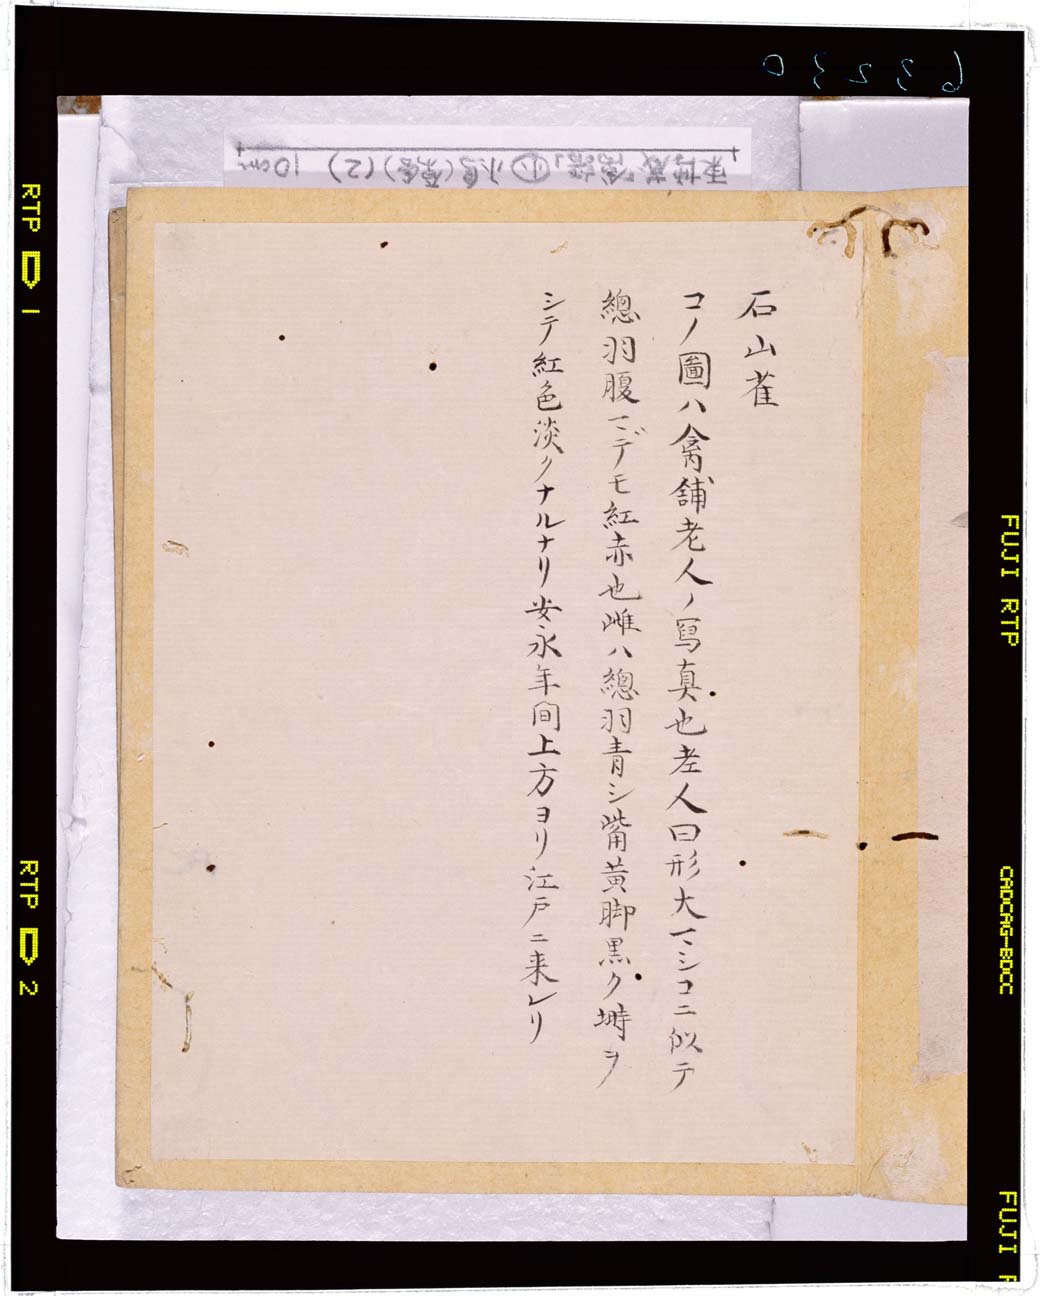 63230
東博蔵「禽譜」小鳥(原禽)(2) 10cm
石山雀
コノ圖ハ禽舖老人ノ寫真也老人曰形大マシコニ似テ
總羽腹マデモ紅赤也雌ハ總羽青シ嘴黄脚黒ク塒ヲ
シテ紅色淡クナルナリ安永年間上方ヨリ江戸ニ来レリ
RTP 1
RTP 2
FUJI RTP
CADCAG-BDCC
FUJI